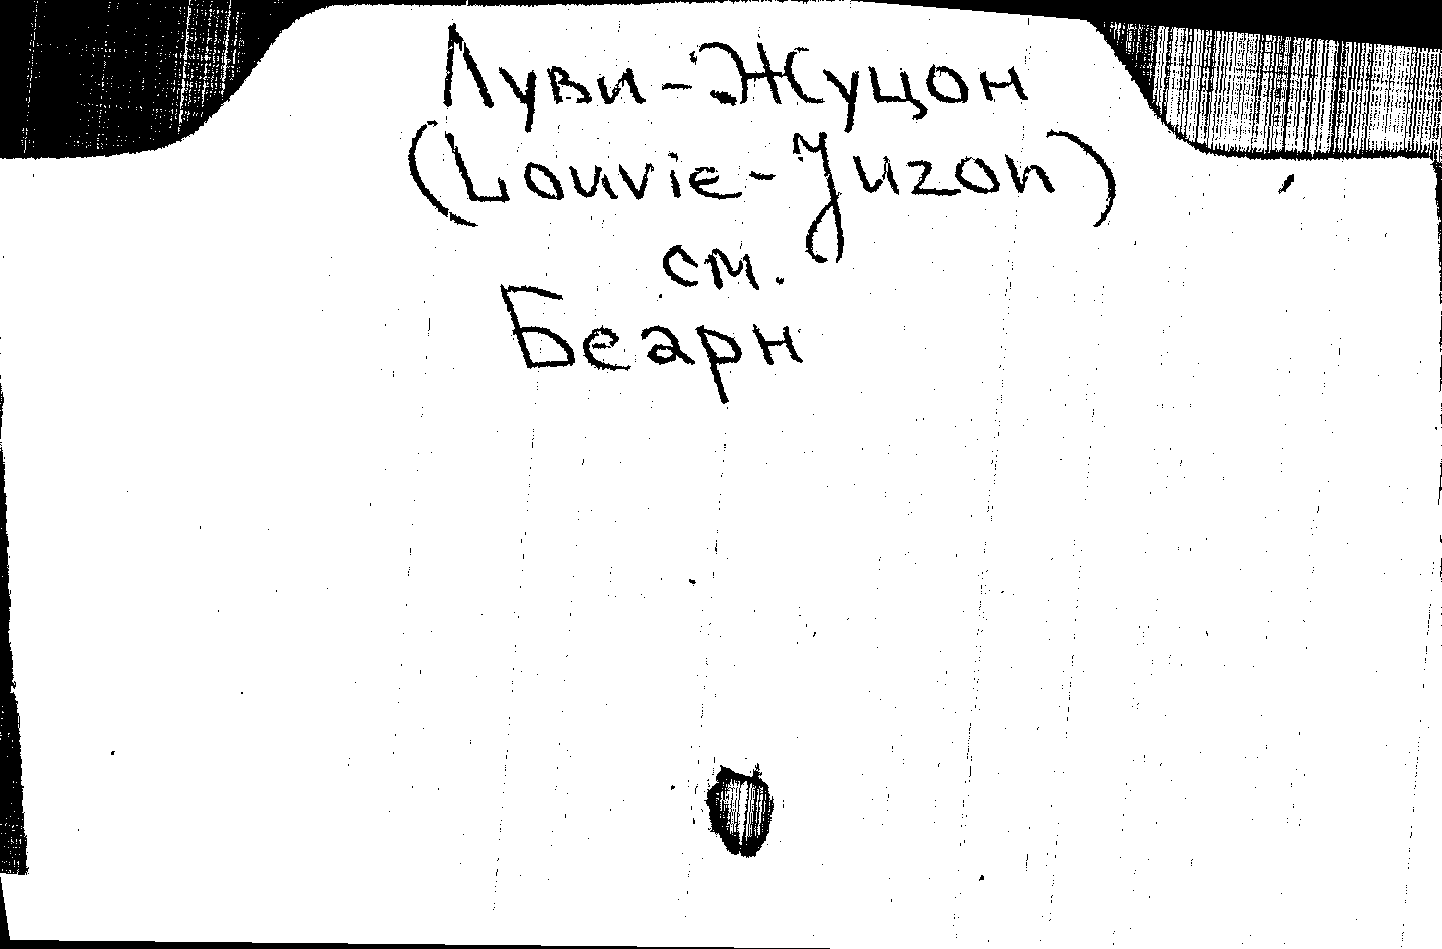 Луви-Жуцон
(Louvie-Juzon)
см.
Беарн